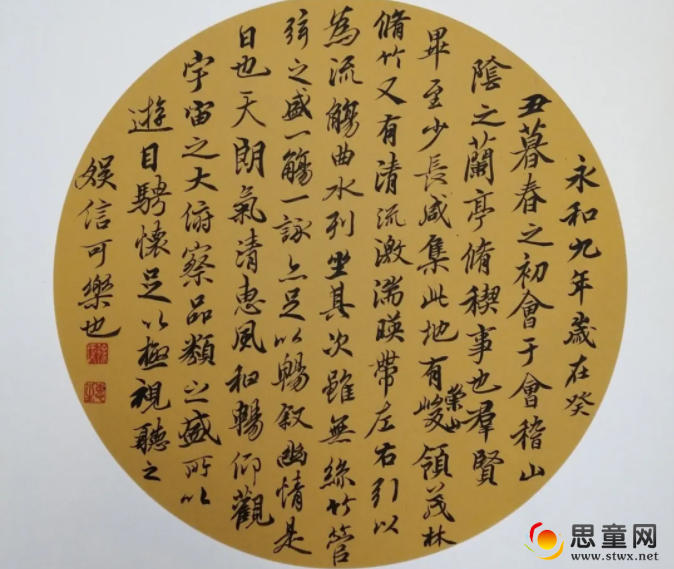 永和九年歲在癸
丑暮春之初會于會稽山
陰之蘭亭脩稧事也羣賢
畢至少長咸集此地有崇山峻領茂林
脩竹又有清流激湍暎帶左右引以
為流觴曲水列坐其次雖無絲竹管
弦之盛一觴一詠亦足以暢叙幽情是
日也天朗氣清惠風和暢仰觀
宇宙之大俯察品類之盛所以
遊目騁懷足以極視聽之
娛信可樂也
思童网
www.stwx.net